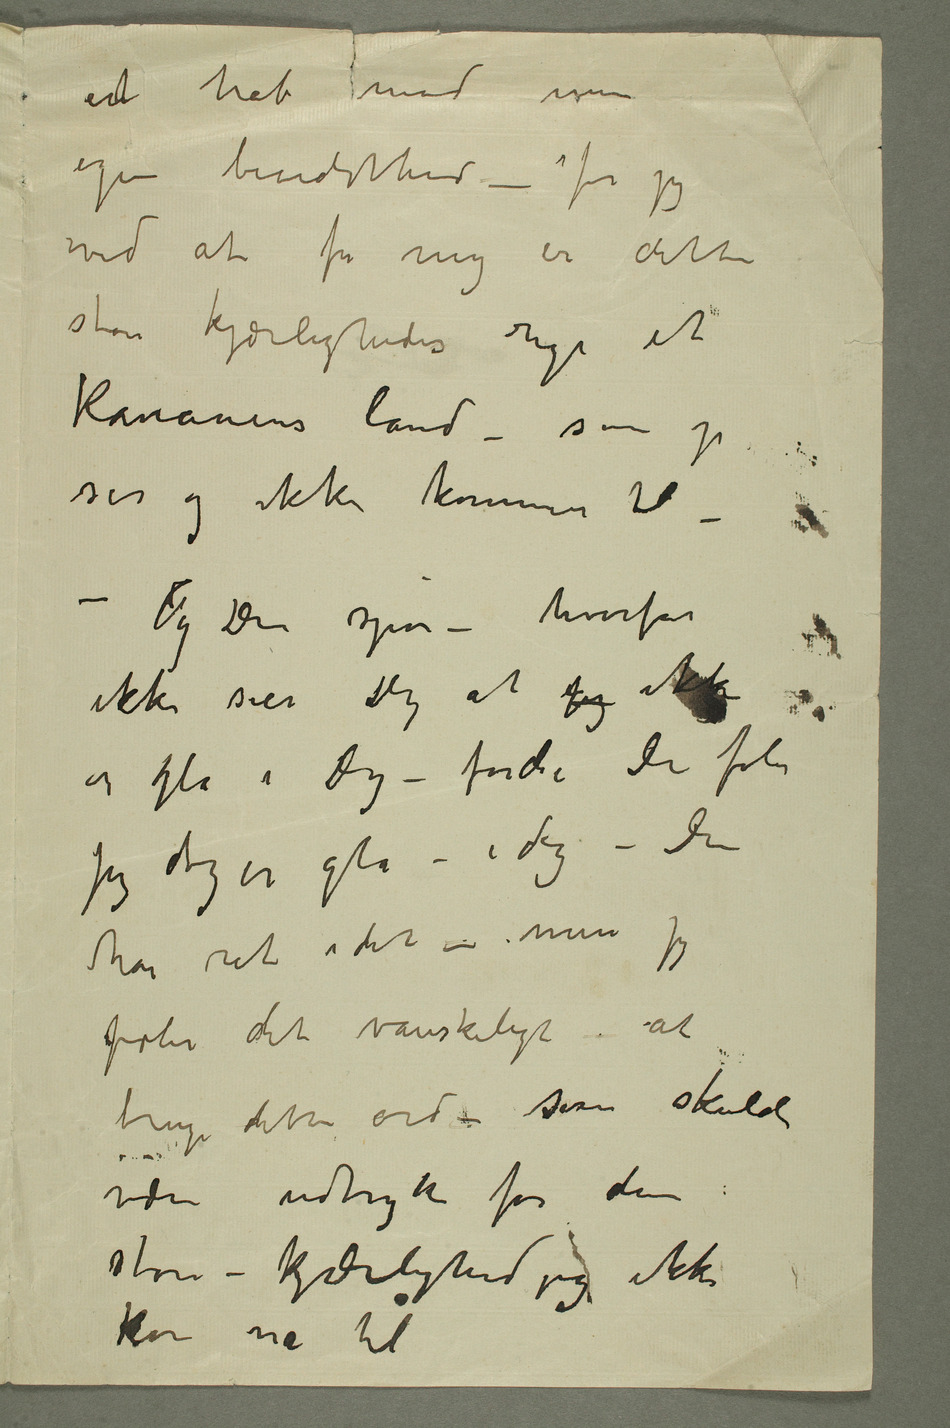 et hab mod min
egen bevidsthed – for jeg
ved at for mig er dette
store kjærlighedes rige et
Kanaanens land – som jeg
ser og ikke kommer til –
– Og Du spør – hvorfor
ikke sier Dig at jeg ikke
er gla i Dig – fordi Du føler
jeg dog er gla – i dig – Du
har ret i det – men jeg
føler det vanskeligt – at
bruge dette ord – som skulde
være udtryk for den
store – kjærlighed jeg ikke
kan nå til